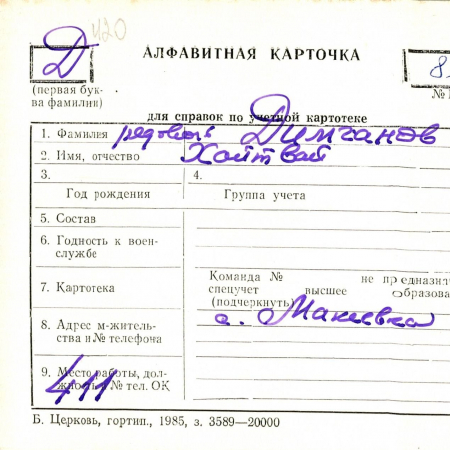 Д 420
АЛФАВИТНАЯ КАРТОЧКА
8
(первая бук-
ва фамилии)
№
для справок по учетной картотеке
1. Фамилия рядовой Димчанов
2. Имя, отчество Хойтвай
3.
Год рождения
4.
Группа учета
5. Состав
6. Годность к воен-
службе
7. Картотека
Команда № не предназн
спецучет высшее образова
(подчеркнуть)
8. Адрес м-житель-
ства и № телефона
с. Макеевка
9. Место работы, дол-
жность и № тел. ОК
411
Б. Церковь, гортип., 1985, з. 3589—20000